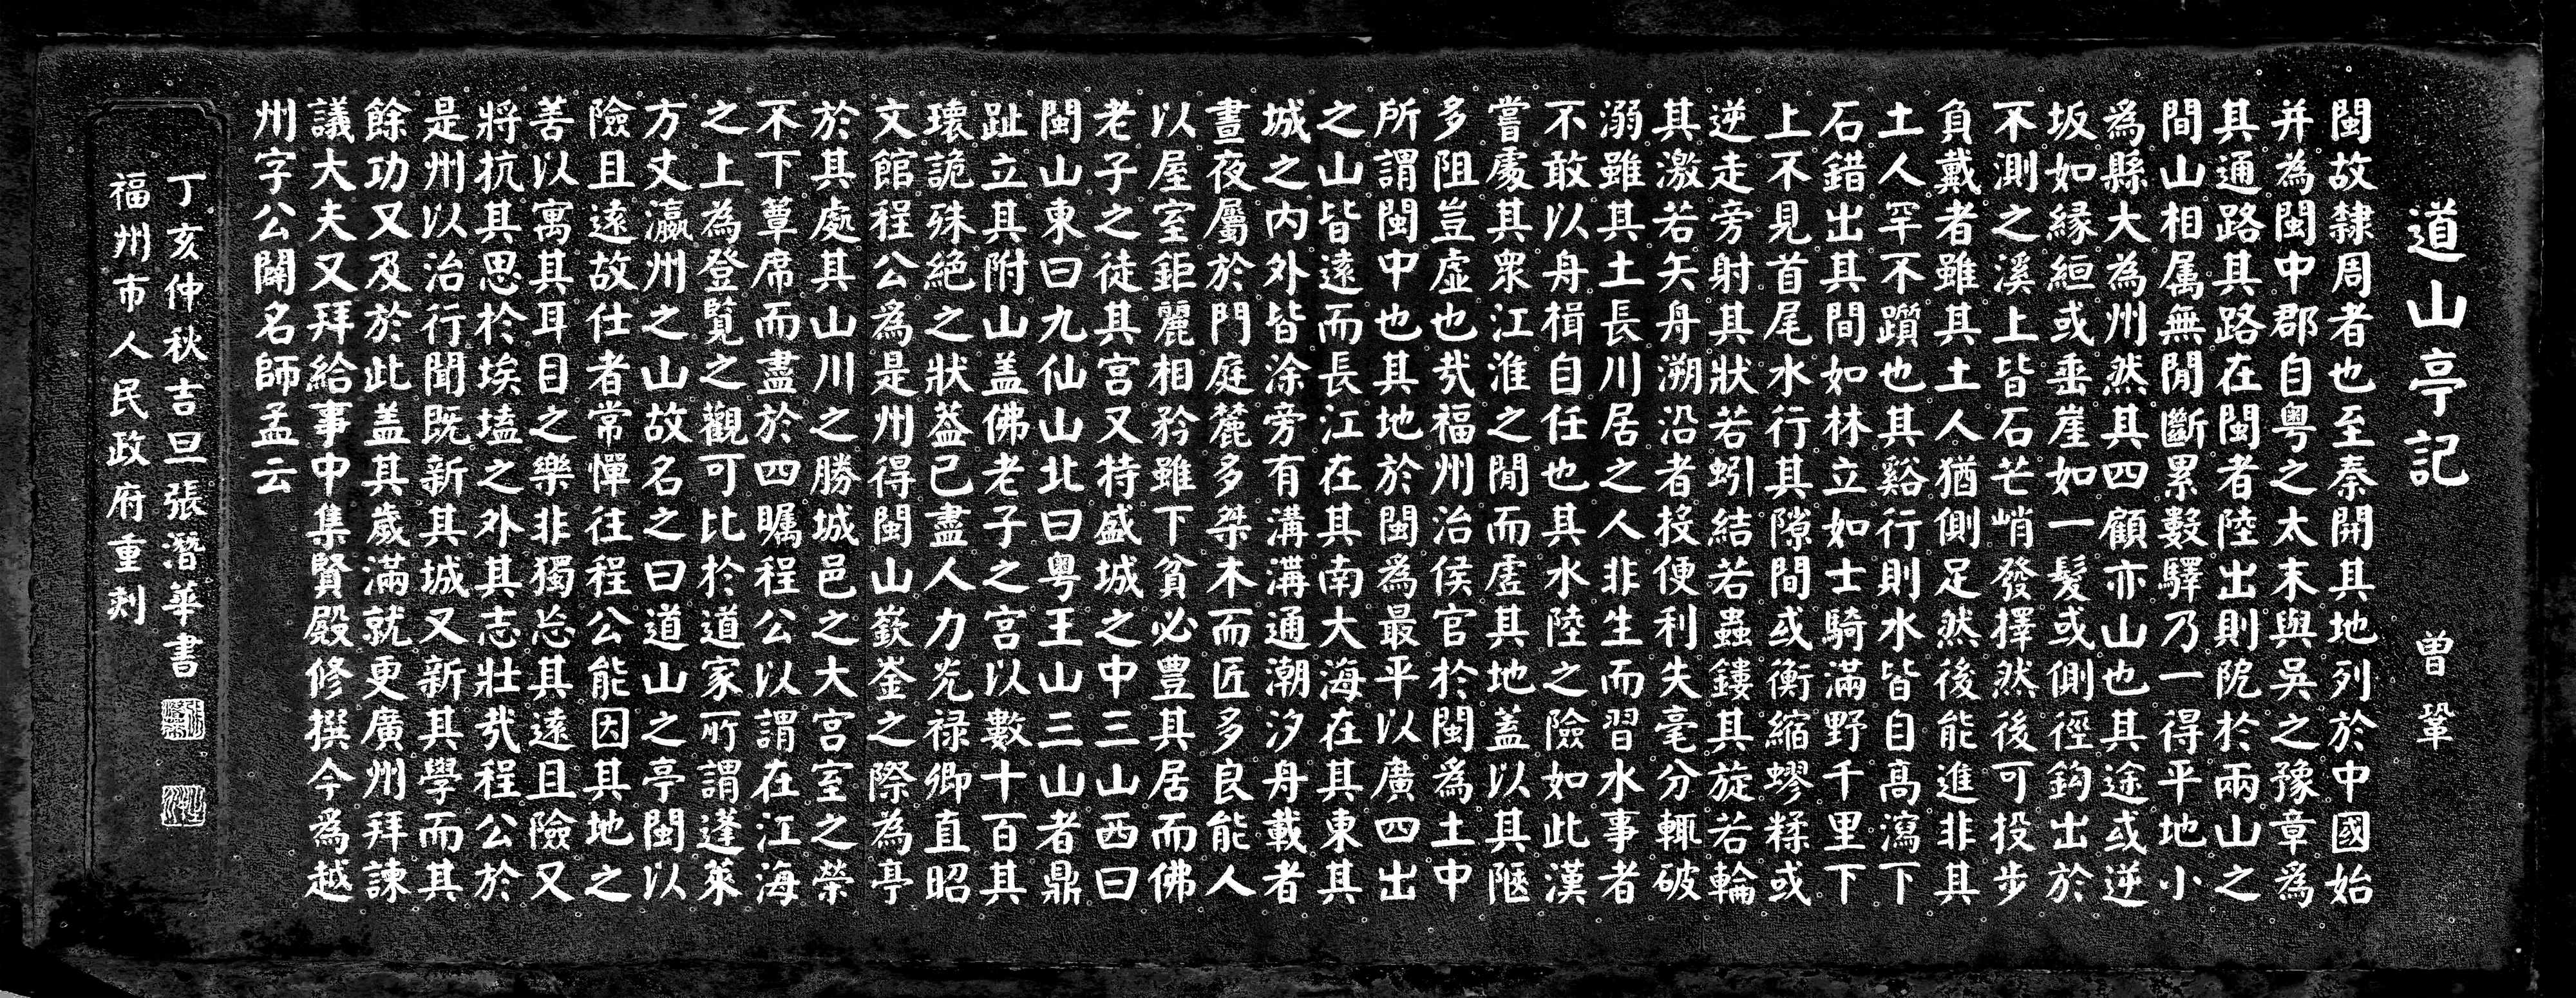 道山亭記
曾鞏
閩故隸周者也至秦開其地列於中國始
并為閩中郡自粵之太末與吳之豫章為
其通路其路在閩者陸出則阸於兩山之
間山相属無間斷累數驛乃一得平地小
為縣大為州然其四顧亦山也其途或逆
坂如緣絙或垂崖如一髪或側徑鈎出於
不測之溪上皆石芒峭發擇然後可投步
負戴者雖其土人猶側足然後能進非其
土人罕不躓也其谿行則水皆自高瀉下
石錯出其間如林立如士騎滿野千里下
上不見首尾水行其隙間或衡縮蟉糅或
逆走旁射其狀若蚓結若蟲鏤其旋若輪
其激若矢舟溯沿者投便利失毫分輒破
溺雖其土長川居之人非生而習水事者
不敢以舟楫自任也其水陸之險如此漢
嘗處其眾江淮之間而虛其地蓋以其陿
多阻豈虛也㢤福州治侯官於閩為土中
所謂閩中也其地於閩為最平以廣四出
之山皆遠而長江在其南大海在其東其
城之内外皆涂旁有溝溝通潮汐舟載者
晝夜屬於門庭麓多桀木而匠多良能人
以屋室鉅麗相矜雖下貧必豐其居而佛
老子之徒其宮又特盛城之中三山西曰
閩山東曰九仙山北曰粵王山三山者鼎
趾立其附山盖佛老子之宮以數十百其
瓌詭殊絕之狀葢已盡人力光禄卿直昭
文館程公為是州得閩山嶔崟之際為亭
於其處其山川之勝城邑之大宮室之榮
不下簟席而盡於四矚程公以謂在江海
之上為登覧之觀可比於道家所謂蓬萊
方丈瀛州之山故名之曰道山之亭閩以
險且遠故仕者常憚往程公能因其地之
善以寓其耳目之樂非獨忘其遠且險又
將抗其思於埃壒之外其志壯㢤程公於
是州以治行聞既新其城又新其學而其
餘功又及於此盖其歲滿就更廣州拜諫
議大夫又拜給事中集賢殿修撰今為越
州字公闢名師孟云
丁亥仲秋吉旦張潛華書
福州市人民政府重刻